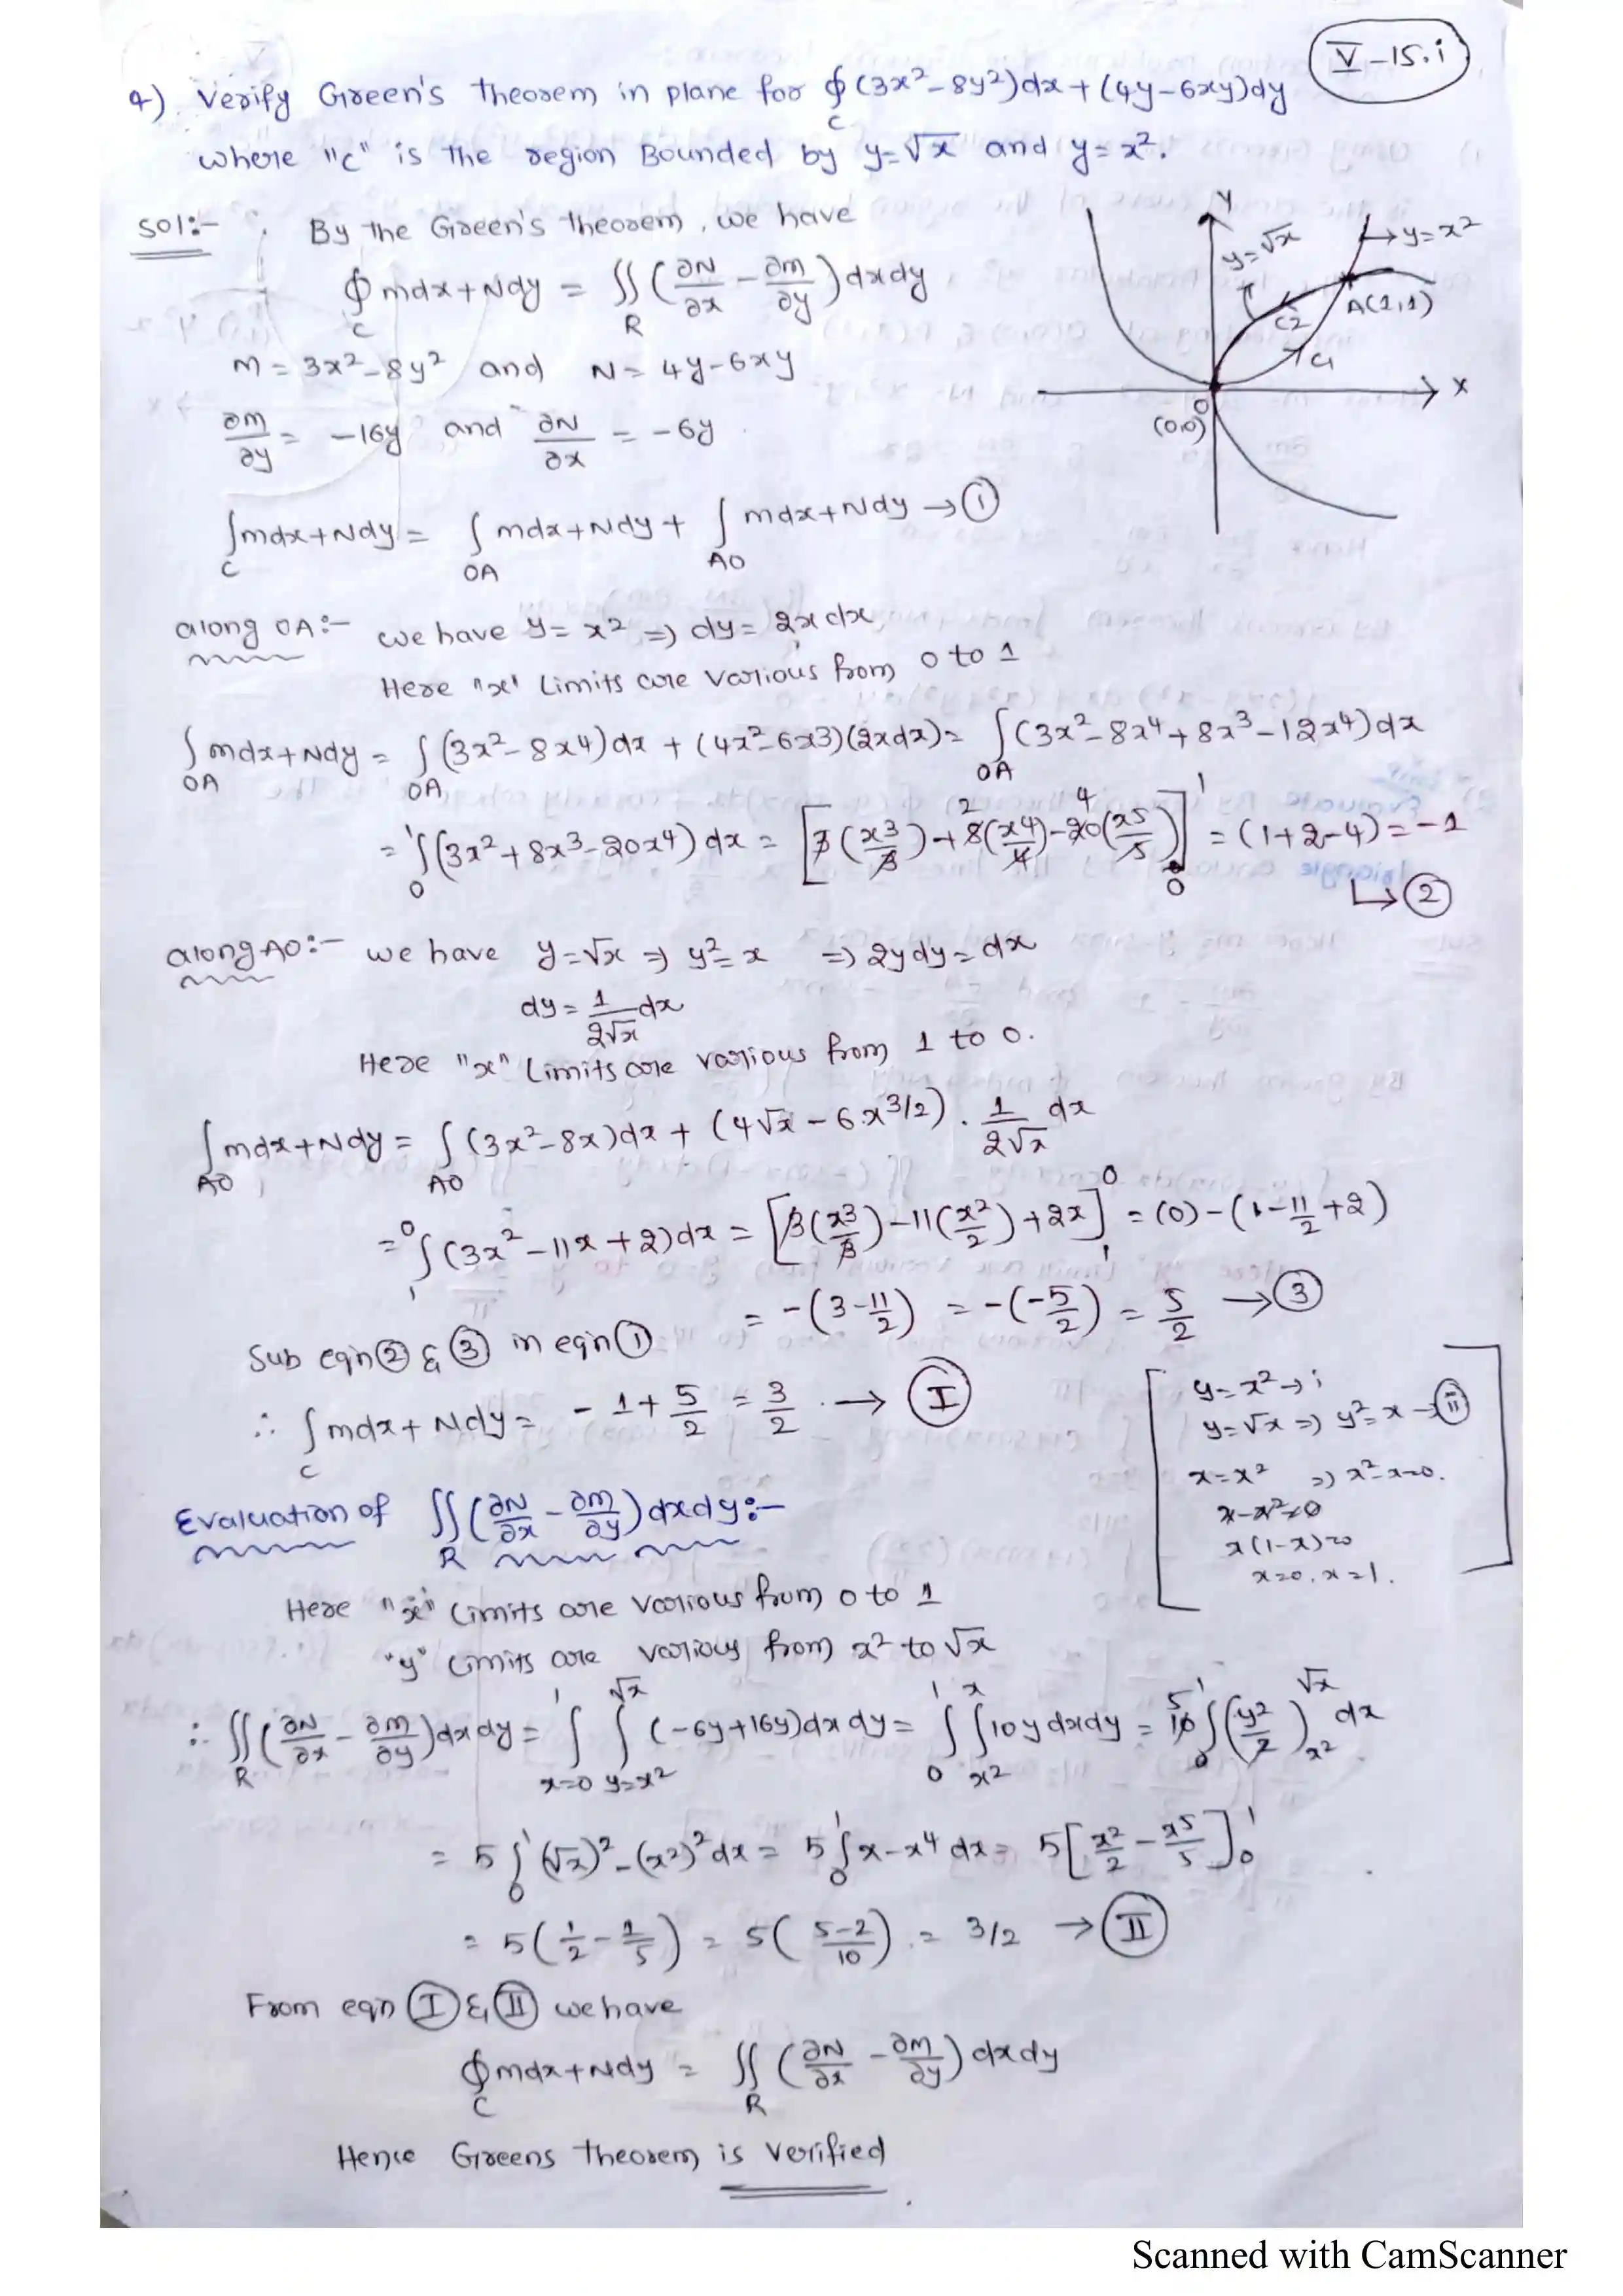 V-15.i
4) Verify Green's theorem in plane for ∮_C (3x²-8y²)dx+(4y-6xy)dy
where "c" is the region Bounded by y=√x and y=x².
Sol:- By the Green's theorem, we have
∮_C mdx+Ndy = ∬_R (∂N/∂x - ∂m/∂y)dxdy
m = 3x²-8y² and N = 4y-6xy
∂m/∂y = -16y and ∂N/∂x = -6y
Y
y=√x
→y=x²
A(1,1)
C2
C1
X
O
(0,0)
∫_C mdx+Ndy = ∫_OA mdx+Ndy + ∫_AO mdx+Ndy → ①
along OA:- we have y=x² ⇒ dy=2xdx
Here "x" Limits are various from 0 to 1
∫_OA mdx+Ndy = ∫_OA (3x²-8x4)dx + (4x²-6x3)(2xdx) = ∫_OA (3x²-8x4+8x³-12x4)dx
= ∫_0^1 (3x²+8x³-20x4)dx = [3(x3/3)+8(x4/4)-20(x5/5)]_0^1 = (1+2-4) = -1
↳ ②
along AO:- we have y=√x ⇒ y²=x ⇒ 2ydy=dx
dy = 1/2√x dx
Here "x" Limits are various from 1 to 0.
∫_AO mdx+Ndy = ∫_AO (3x²-8x)dx + (4√x - 6.x^3/2) . 1/2√x dx
= ∫_1^0 (3x²-11x+2)dx = [3(x3/3)-11(x²/2)+2x]_1^0 = (0)-(1-11/2+2)
= -(3-11/2) = -(-5/2) = 5/2 → ③
Sub eqn ② & ③ in eqn ①
∴ ∫_C mdx+Ndy = -1+5/2 = 3/2 . → Ⓘ
y=x² → i
y=√x ⇒ y²=x → ii
x=x² ⇒ x²-x=0.
x-x²=0
x(1-x)=0
x=0, x=1.
Evaluation of ∬_R (∂N/∂x - ∂m/∂y)dxdy:-
Here "x" Limits are various from 0 to 1
"y" Limits are various from x² to √x
∴ ∬_R (∂N/∂x - ∂m/∂y)dxdy = ∫_x=0^1 ∫_y=x²^√x (-6y+16y)dxdy = ∫_0^1 ∫_x²^x 10ydxdy = 10 5 ∫_0^1 (y²/2)_x²^√x dx
= 5∫_0^1 (√x)²-(x²)²dx = 5∫_0^1 x-x4 dx = 5[x²/2 - x5/5]_0^1
= 5(1/2 - 1/5) = 5(5-2/10) = 3/2 → II
From eqn I & II we have
∮_C mdx+Ndy = ∬_R (∂N/∂x - ∂M/∂y)dxdy
Hence Greens theorem is verified
Scanned with CamScanner